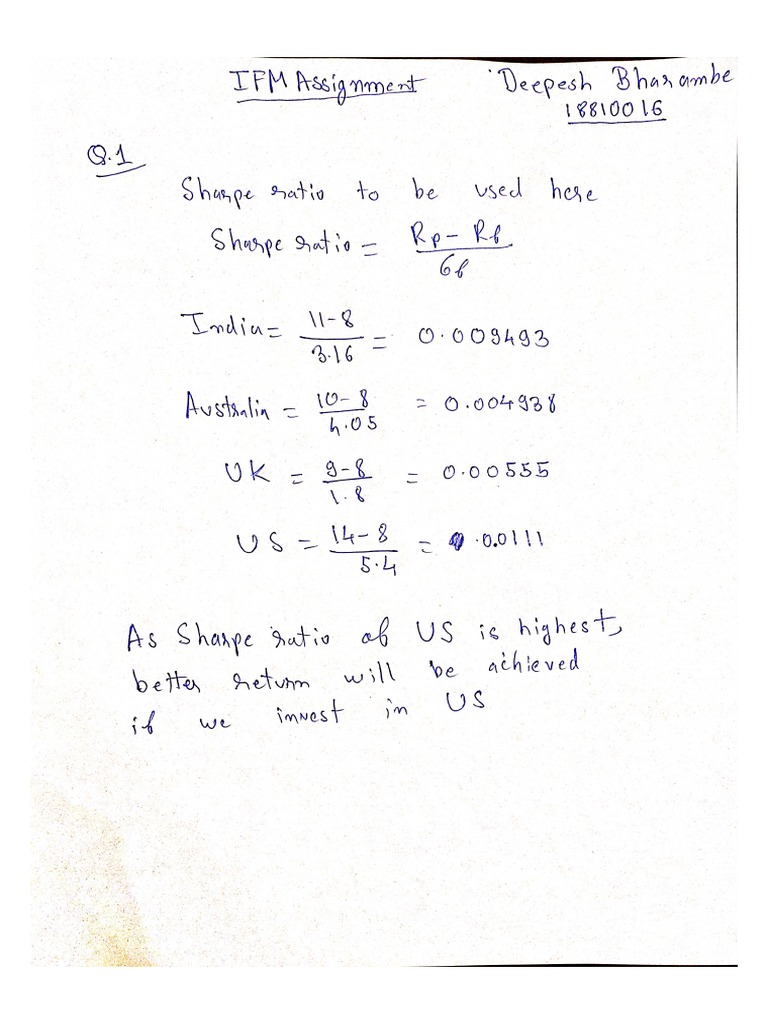 IFM Assignment Deepesh Bharambe
18810016
Q.1
Sharpe ratio to be used here
Sharpe ratio = Rp - Rf / σf
India = 11-8 / 3.16 = 0.009493
Australia = 10-8 / 4.05 = 0.004938
UK = 9-8 / 1.8 = 0.00555
US = 14-8 / 5.4 = 0.0111
As Sharpe ratio of US is highest,
better return will be achieved
if we invest in US